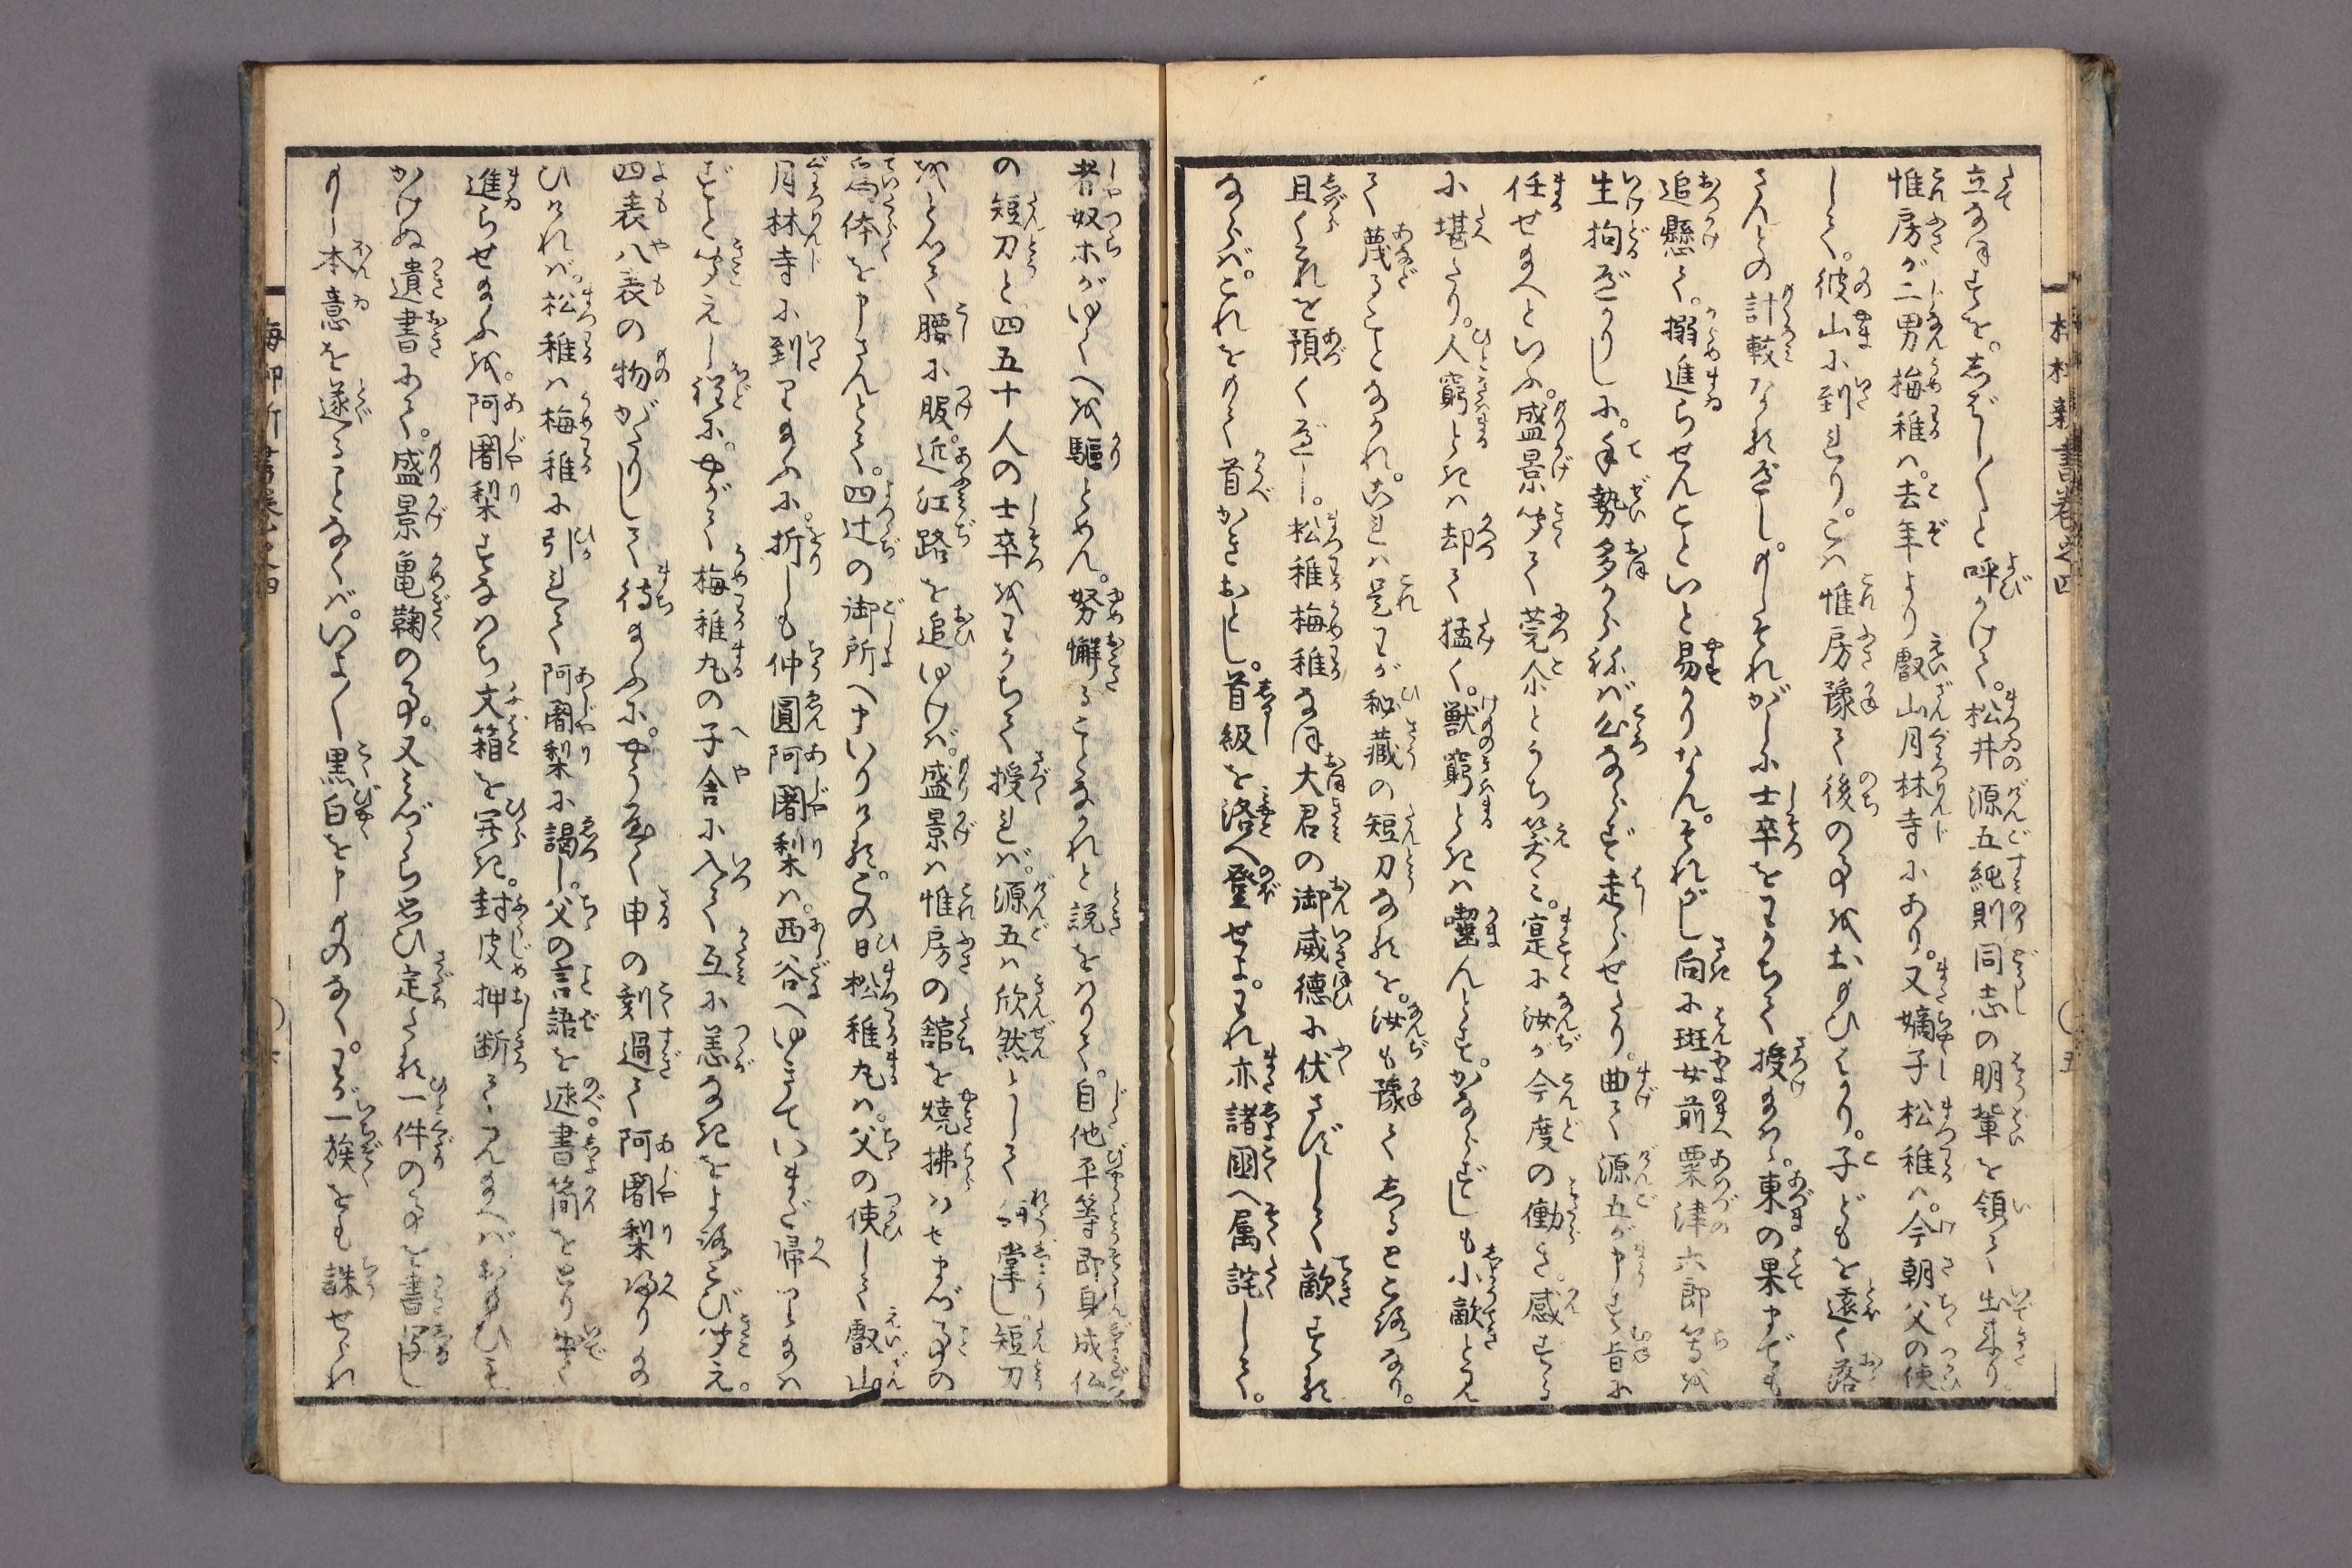 立なほすを。しばし〳〵と呼かけて。松井源五純則同志の朋輩を領て出来り。
惟房が二男梅稚は。去年より叡山月林寺にあり。又嫡子松稚は。今朝父の使
して。彼山に到れり。こは惟房豫て後の事を おもひはかり。子どもを遠く落
さんとの計較なるべし。もしそれがしに士卒をわかちて授給はゞ。東の果までも
追懸て。搦進らせんこといと易かりなん。それがし向に班女前粟津六郎等を
生拘べかりしに。手勢多からねば公ならず走らせたり。曲て源五が申す旨に
任せ給へといふ。盛景聞て莞尓とうち笑み。寔に汝が今度の働き。感ずる
に堪たり。人窮ときは却て猛く。獣窮ときは囓んとす。かならずしも小敵とみ
て蔑ることなかれ。こは是わが秘蔵の短刀なるを。汝も豫てしるところなり。
且くこれを預くべし。松稚梅稚なほ大君の御威徳に伏さずして敵するな
ならば。これをもて首かきおとし。首級を洛へ登せよ。われ亦諸國へ属詫して。
者奴ホがゆくへを驅とめん。努懈ることなかれと説をはりて。自他平等即身成仏
の短刀と四五十人の士卒をわかちて授れば。源五は欣然として領掌し。短刀
をとつて腰に服。近江路を追ゆけば。盛景は惟房の舘を燒拂はせまづ事の
爲体を申さんとて。四辻の御所へまいりける。この日松稚丸は。父の使して叡山
月林寺に到り給ふに。折しも仲圓阿闍梨は。西谷へゆきていまだ帰り給は
ずと聞えし程に。やがて梅稚丸の子舎に入て互に恙なきをよろこび聞え。
四表八表の物がたりして待給ふに。やうやく申の刻過て阿闍梨かへり給
ひければ。松稚は梅稚に引れて阿闍梨に謁し。父の言語を述書簡をとり出て
進らせ給ふを。阿闍梨すなはち文箱を開き。封皮押断てみ給へばおもひも
かけぬ遺書にて。盛景亀鞠の事。又みづから思ひ定たる一件の事を書写し
もし本意を遂ることなくば。いよ〳〵黒白を申すものなく。わが一族をも誅せられ